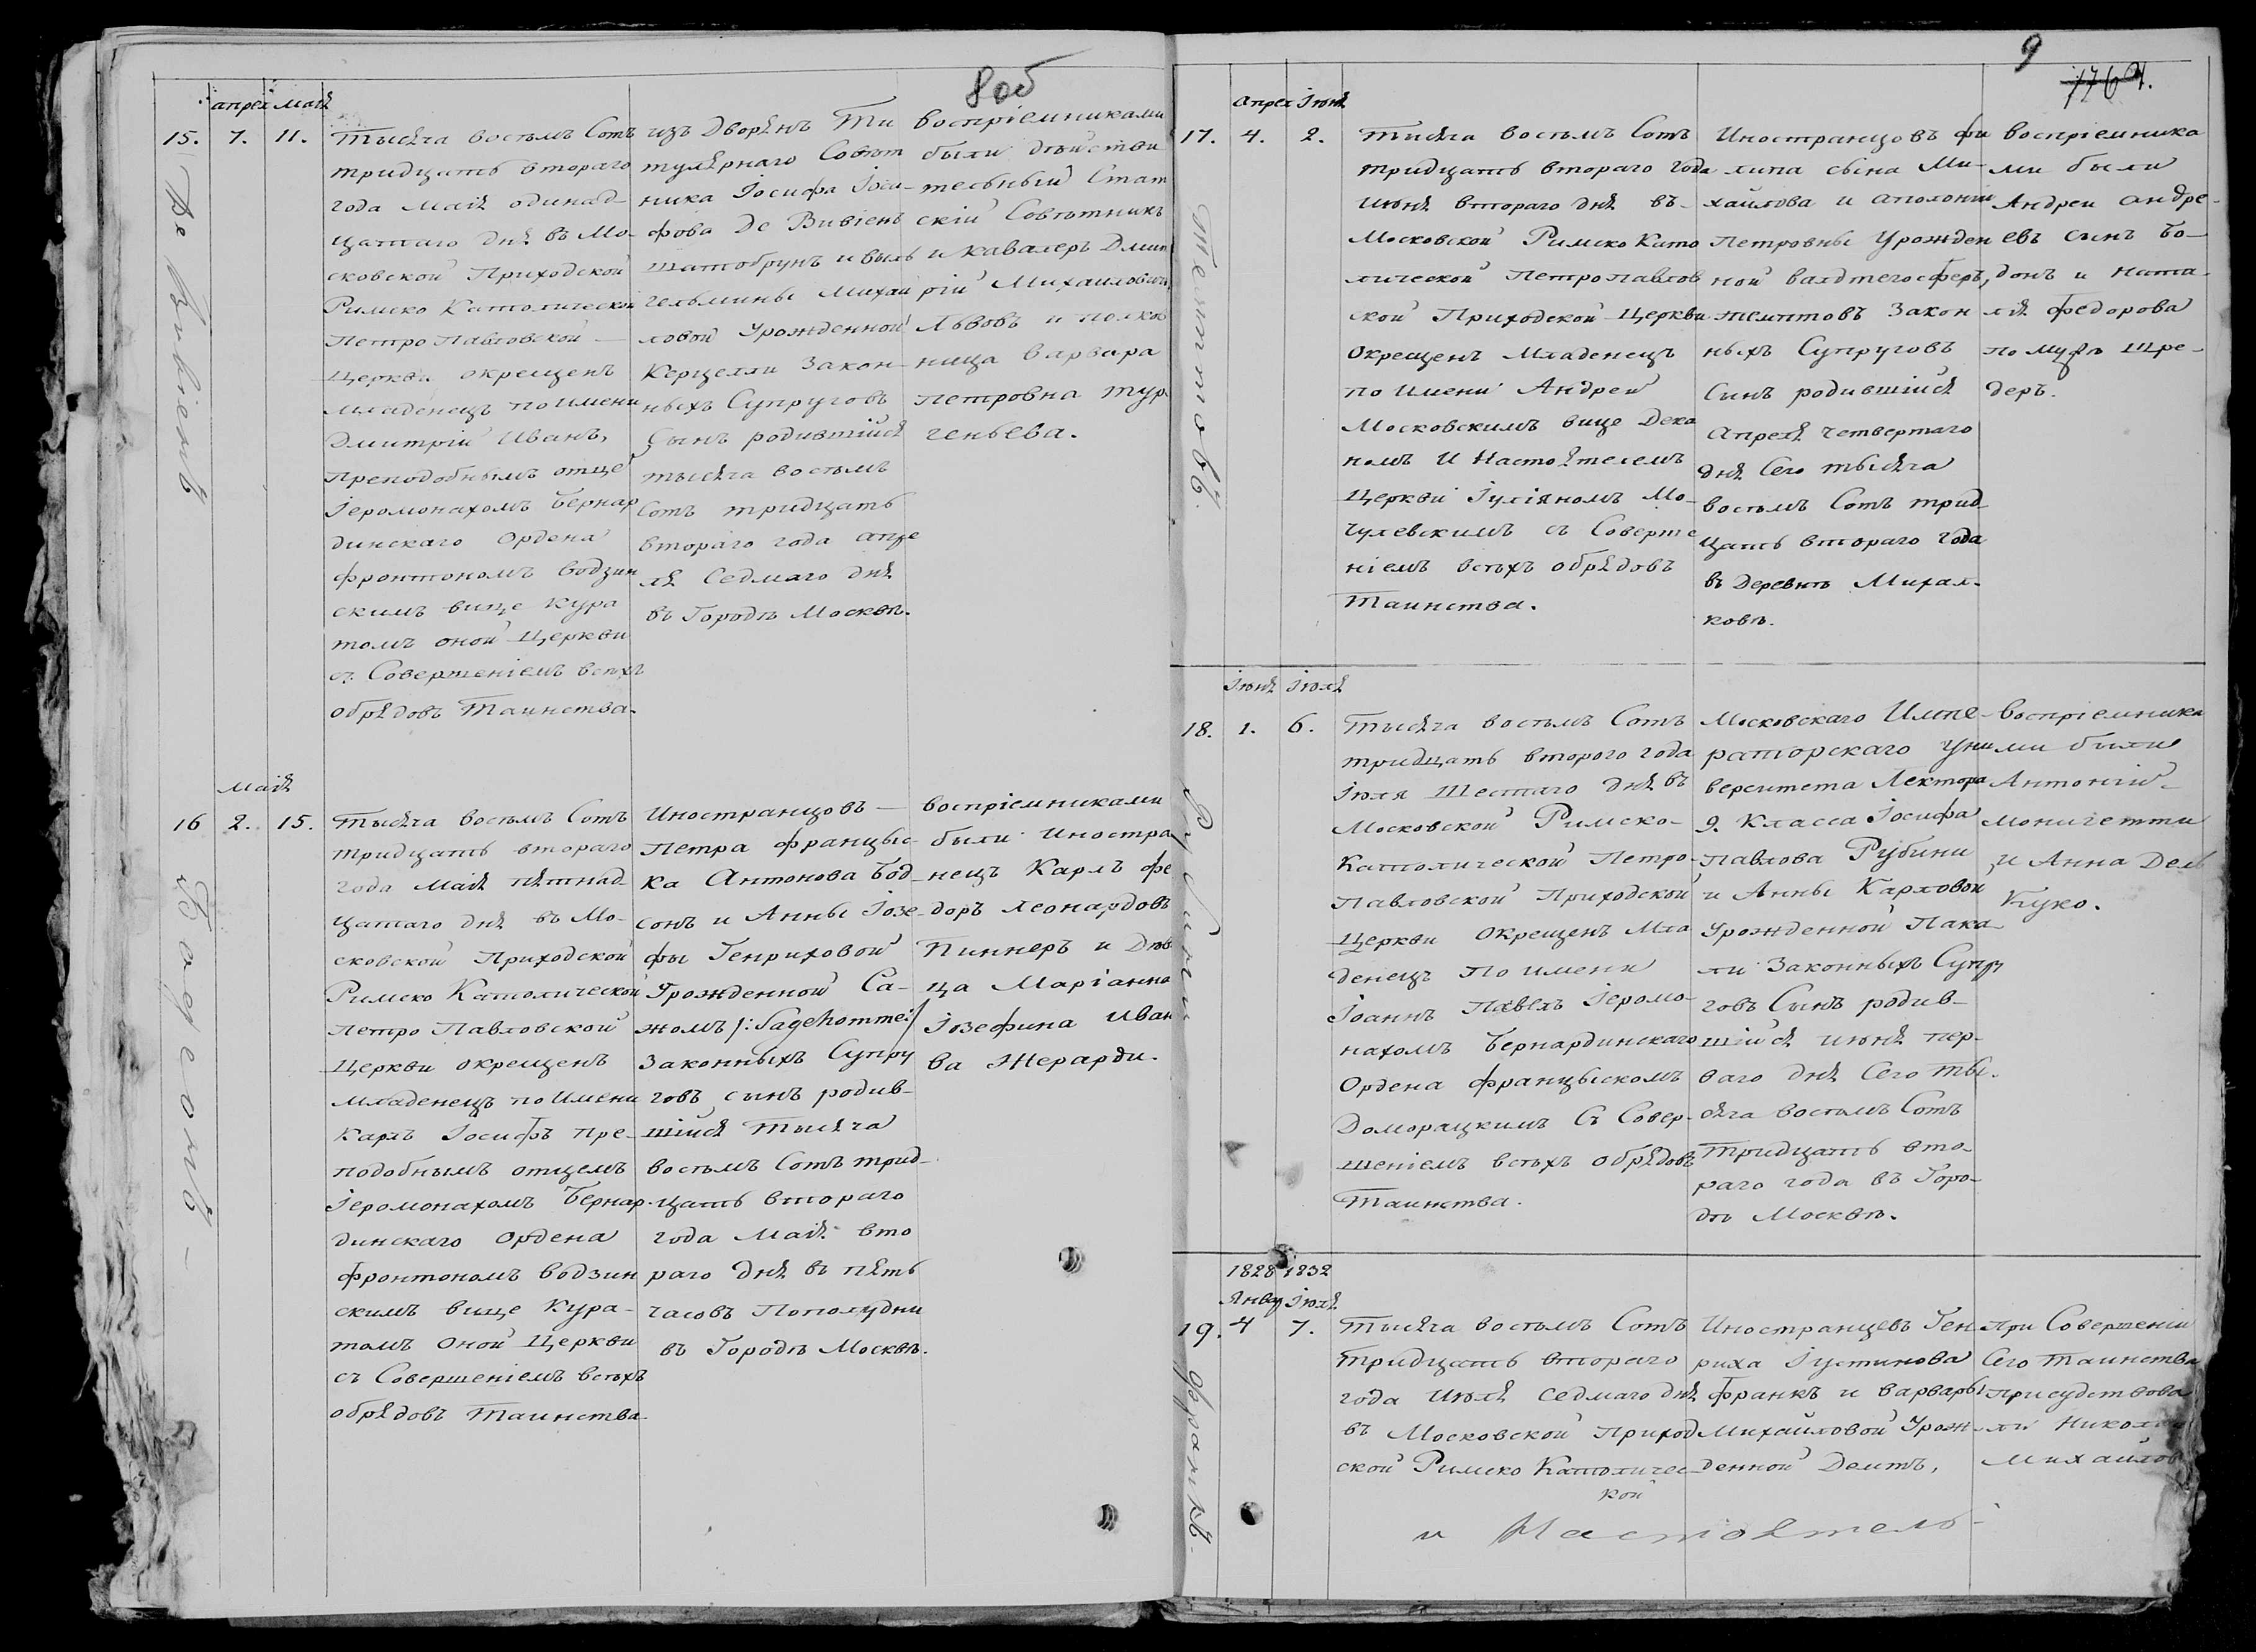 8 об
апрел маія
15. 7. 11.
Де Вивіенъ
Тысяча восемъ Сотъ
тридцать втораго
года маія одинад-
цатаго дня въ Мо-
сковской Приходской
Римско Католической
Петро Павловской —
Церкви окрещенъ
младенецъ по имени
Дмитрій Иванъ,
Преподобнымъ отце
Іеромонахомъ Бернар
динскаго Ордена
фронтономъ Водзин
скимъ вице Кура
томъ оной Церкви
съ Совершеніемъ всѣхъ
обрядовъ Таинства.
изъ Дворянъ Ти
тулярнаго Совѣт
ника Іосифа Іоси-
фова Де Вивіенъ
Шатобрунъ и Виль
гельмины Михаи
ловой Урожденной
Керцелли Закон-
ныхъ Супруговъ
Сынъ родившійся
тысяча восемъ
Сотъ тридцать
втораго года апре
ля Седмаго дня
въ Городѣ Москвѣ.
воспріемниками
были дѣйстви
тельный Стат
скій Совѣтникъ
и кавалеръ Дмит
рій Михаиловичь
Львовъ и полков
ница Варвара
Петровна Тур
геньева.
маія
16 2. 15.
Бодсонъ —
Тысяча восемъ Сотъ
тридцать втораго
года маія пятнад-
цатаго дня въ Мо-
сковской Приходской
Римско Католической
Петро Павловской
Церкви окрещенъ
младенецъ по имени
Карлъ Іосифъ пре-
подобнымъ отцемъ
Іеромонахомъ Бернар-
динскаго Ордена
фронтономъ Водзин
скимъ вице Кура-
томъ оной Церкви
съ Совершеніемъ всѣхъ
обрядовъ Таинства
Иностранцовъ —
Петра францыс-
ка Антонова Бод-
сонъ и Анны Іозе-
фы Генриховой
Урожденной Са-
жомъ /: Sagehomme :/
Законныхъ Супру
говъ сынъ родив-
шійся Тысяча
восемъ Сотъ трид-
цать втораго
года маія вто
раго дня въ пять
часовъ Пополудни
въ Городѣ Москвѣ.
воспріемниками
были Иностра
нецъ Карлъ фе
доръ леонардовъ
Пиннеръ и Дѣви
ца Маріанна
Іозефина Иван
ва Жерарди.
9
1764.
апрел Іюня
17. 4. 2.
Тысяча восемъ Сотъ
тридцать втораго года
Июня втораго дня въ-
Московской Римско Като
лической Петропавлов
ской Приходской Церкви
Окрещенъ Младенецъ
по Имени Андрей
Московскимъ вице Дека
номъ и Настоятелемъ
Церкви Іуліяномъ Мо-
чулевскимъ съ Соверше
ніемъ всѣхъ обрядовъ
Таинства.
Иностранцовъ фи
липа сына Ми-
хайлова и Аполоніи
Петровны Урожден
ной Валдтегосферъ,
темптовъ Закон
ныхъ Супруговъ
Сынъ родившійся
Апреля Четвертаго
дня Сего тысяча
восемъ Сотъ трид-
цать втораго года
въ Деревнѣ Михал-
ковѣ.
воспріемника
ми были
Андреи андре-
евъ сынъ Бо-
донъ и Ната-
лія федорова
по мужѣ Шре-
деръ.
Іюня Іюля
18. 1. 6.
Рубини
Тысяча восемъ Сотъ
тридцать второго года
Іюля Шестаго дня въ
Московской Римско-
Католической Петро-
Павловской Приходской
Церкви Окрещенъ Мла
денецъ по имени
Іоаннъ Павелъ Іеромо-
нахомъ Бернардинскаго
Ордена францыскомъ
Доморацкимъ съ Совер-
шеніемъ всѣхъ обрядовъ
Таинства.
Московскаго Импе-
раторскаго Уни
верситета Лектора
9. Класса Іосифа
Павлова Рубини
и Анны Карловой
Урожденной Пака-
ли Законныхъ Супру
говъ Сынъ родив-
шійся июня пер-
ваго дня Сего ты-
сяча восемъ Сотъ
Тридцать вто-
раго года въ Горо-
дѣ Москвѣ.
воспріемника
ми были
Антоній
Моничетти
и Анна Дель
Куко.
1828 1832
Январ Іюля
19. 4 7.
Франкъ.
Тысяча восемъ Сотъ
Тридцать втораго
года июля седмаго дня
въ Московской Приход
ской Римско Католичес-
кой
Иностранцевъ Ген
риха Іустинова
франкъ и варвары
Михайловой Урож-
денной Демтъ,
при Совершеніи
Сего Таинства
присудствова
ли Николаи
Михайлов
и Настоятель